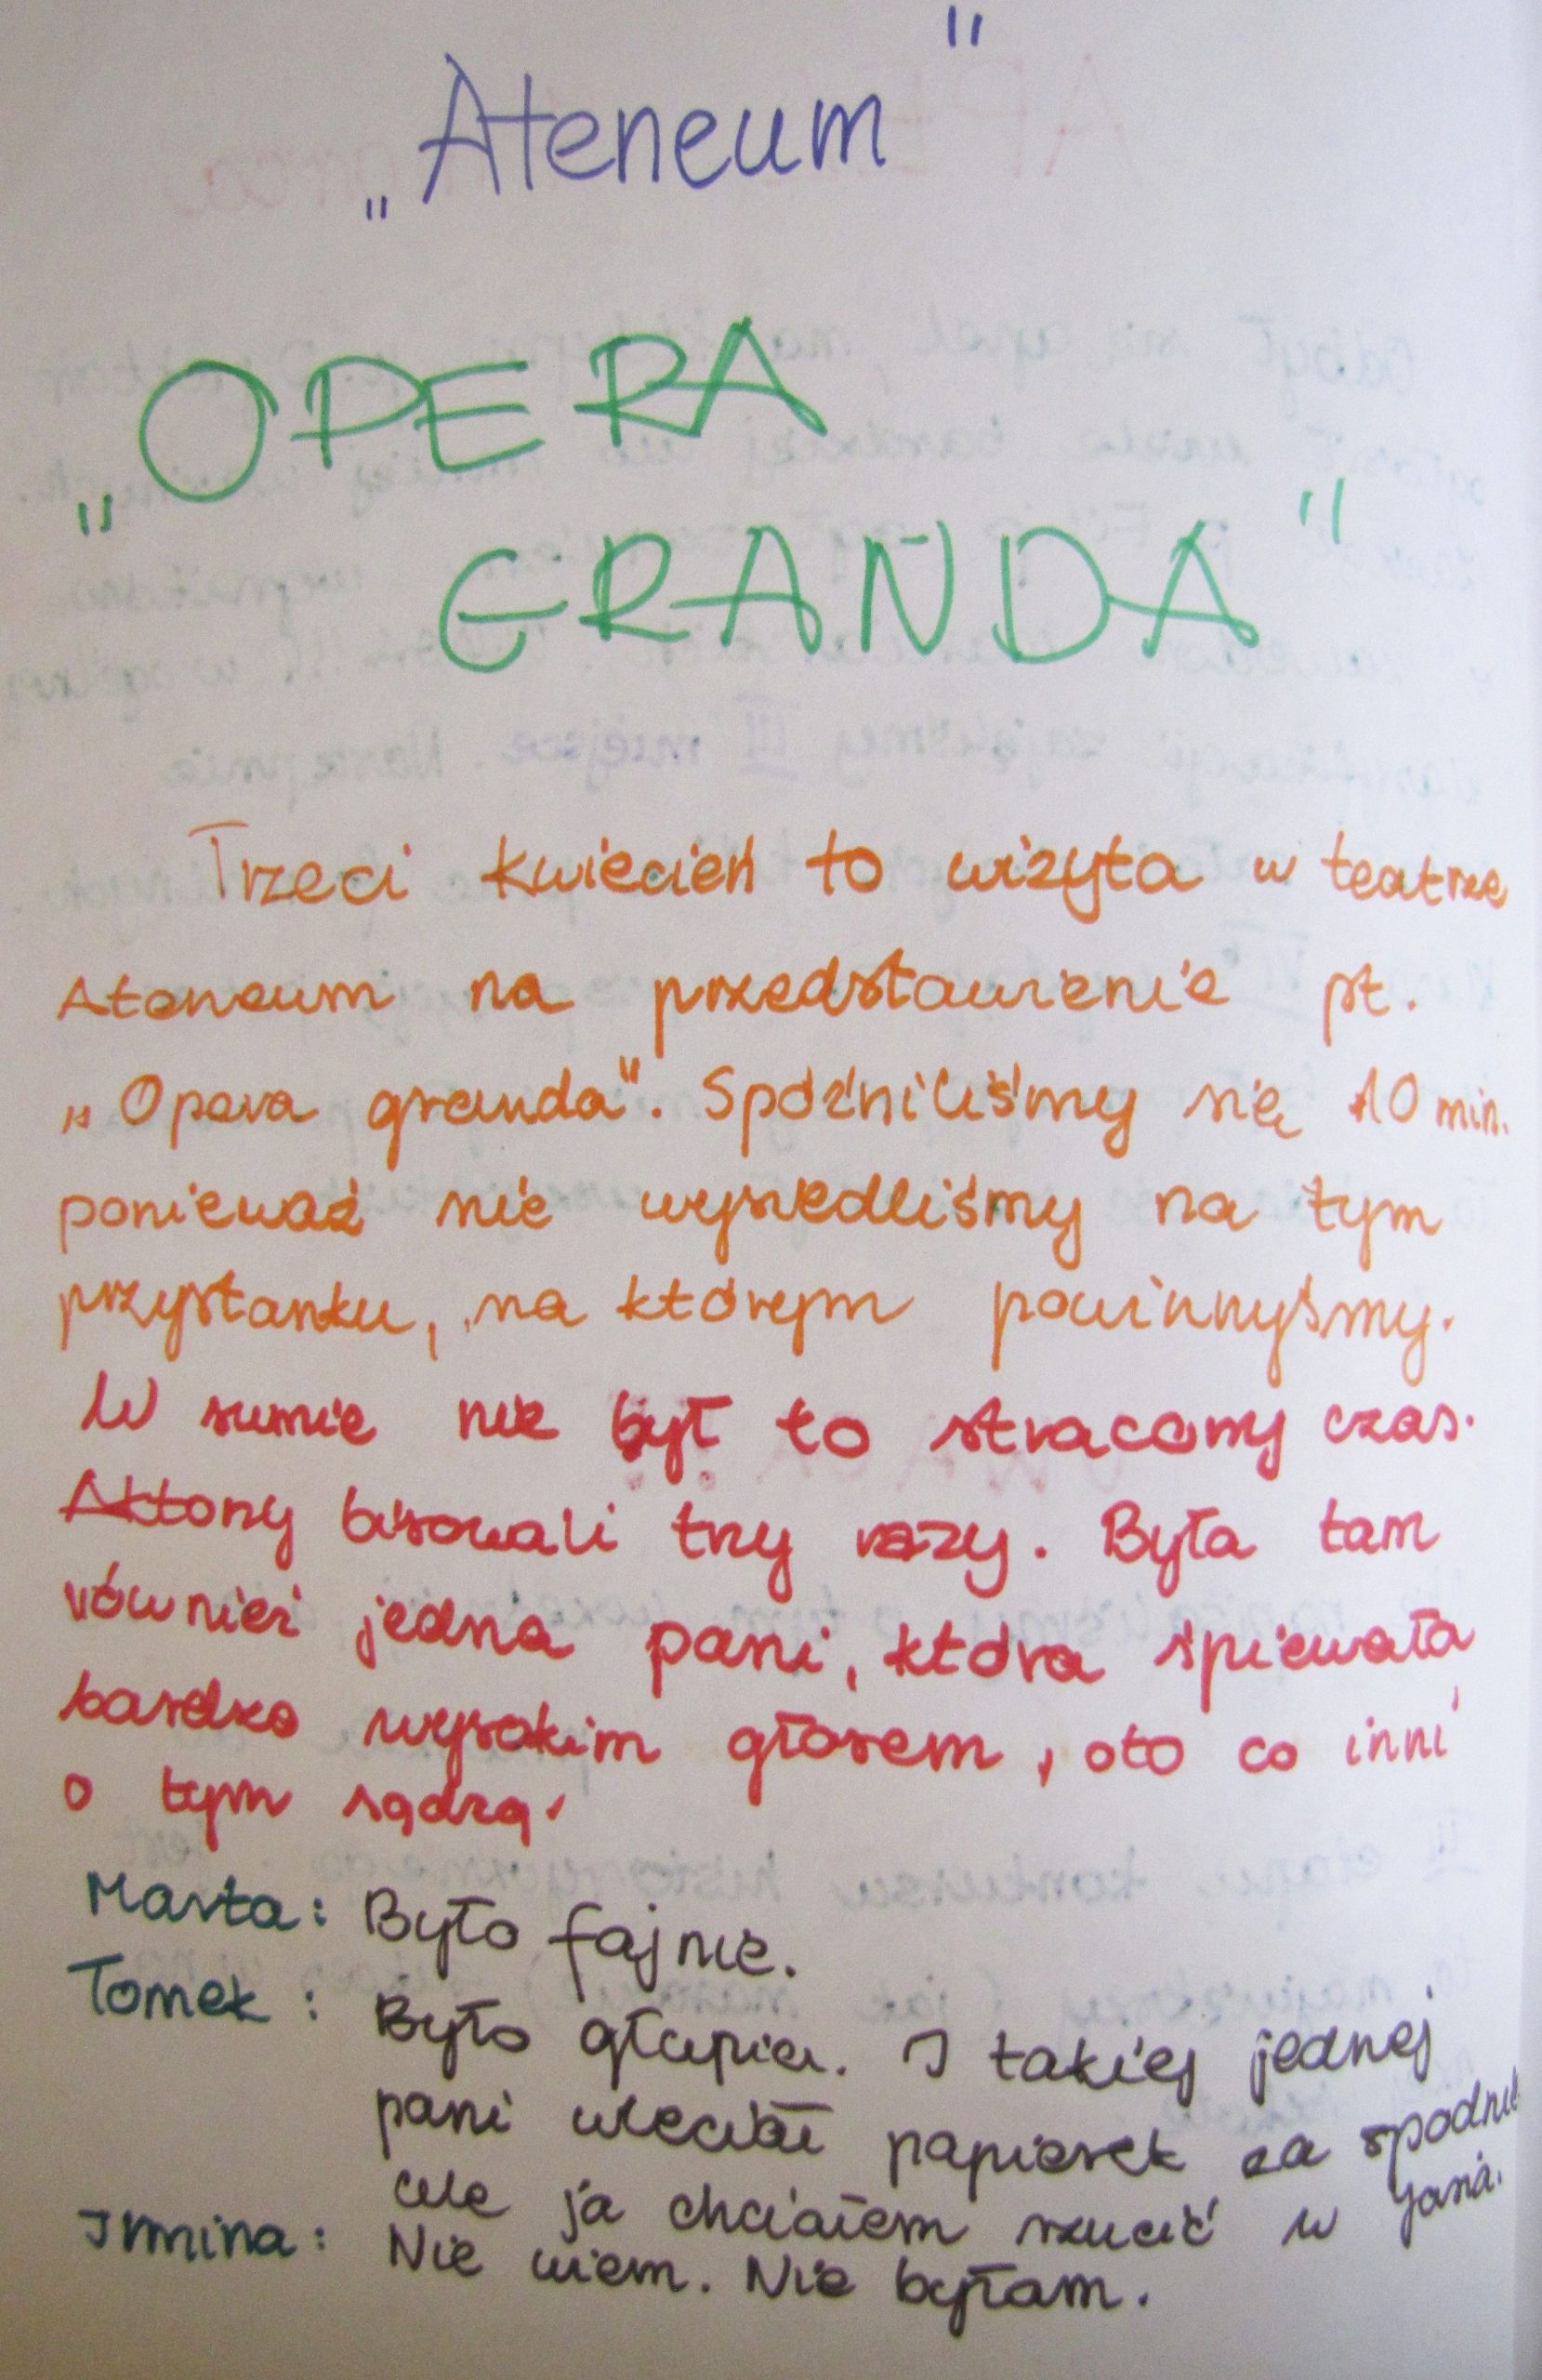 „Ateneum"
„OPERA
GRANDA"
Trzeci kwiecień to wizyta w teatrze
Ateneum na przedstawienie pt.
„Opera granda". Spóźniliśmy się 10 min.
ponieważ nie wysiedliśmy na tym
przystanku, na którym powinnyśmy.
W sumie nie był to stracony czas.
Aktorzy bisowali trzy razy. Była tam
również jedna pani, która śpiewała
bardzo wysokim głosem, oto co inni
o tym sądzą.
Marta: Było fajnie.
Tomek: Było głupie. I takiej jednej
pani wleciał papierek za spodnie
ale ja chciałem rzucić w Jasia.
Irmina: Nie wiem. Nie byłam.